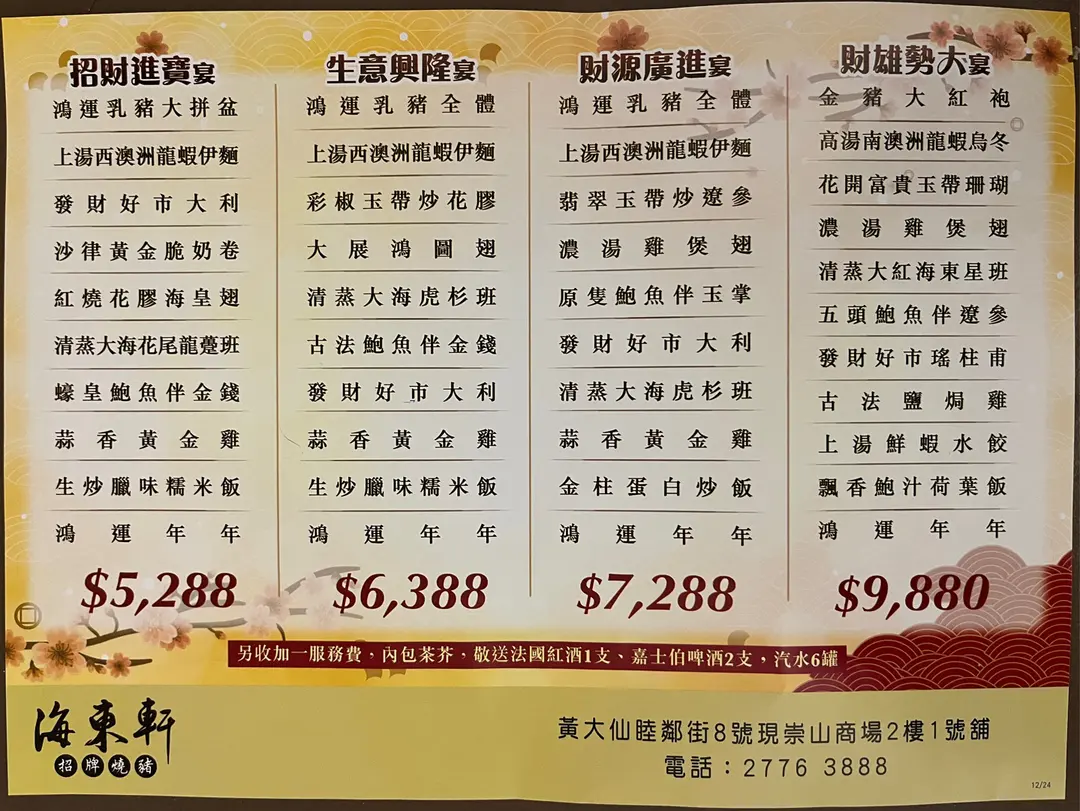 招財進寶宴
鴻運乳豬大拼盆
上湯西澳洲龍蝦伊麵
發財好市大利
沙律黃金脆奶卷
紅燒花膠海皇翅
清蒸大海花尾龍躉班
蠔皇鮑魚伴金錢
蒜香黃金雞
生炒臘味糯米飯
鴻運年年
$5,288
生意興隆宴
鴻運乳豬全體
上湯西澳洲龍蝦伊麵
彩椒玉帶炒花膠
大展鴻圖翅
清蒸大海虎杉班
古法鮑魚伴金錢
發財好市大利
蒜香黃金雞
生炒臘味糯米飯
鴻運年年
$6,388
財源廣進宴
鴻運乳豬全體
上湯西澳洲龍蝦伊麵
翡翠玉帶炒遼參
濃湯雞煲翅
原隻鮑魚伴玉掌
發財好市大利
清蒸大海虎杉班
蒜香黃金雞
金柱蛋白炒飯
鴻運年年
$7,288
財雄勢大宴
金豬大紅袍
高湯南澳洲龍蝦烏冬
花開富貴玉帶珊瑚
濃湯雞煲翅
清蒸大紅海東星班
五頭鮑魚伴遼參
發財好市瑤柱甫
古法鹽焗雞
上湯鮮蝦水餃
飄香鮑汁荷葉飯
鴻運年年
$9,880
另收加一服務費，內包茶芥，敬送法國紅酒1支、嘉士伯啤酒2支，汽水6罐
海東軒
招牌燒豬
黃大仙睦鄰街8號現崇山商場2樓1號舖
電話：2776 3888
12/24